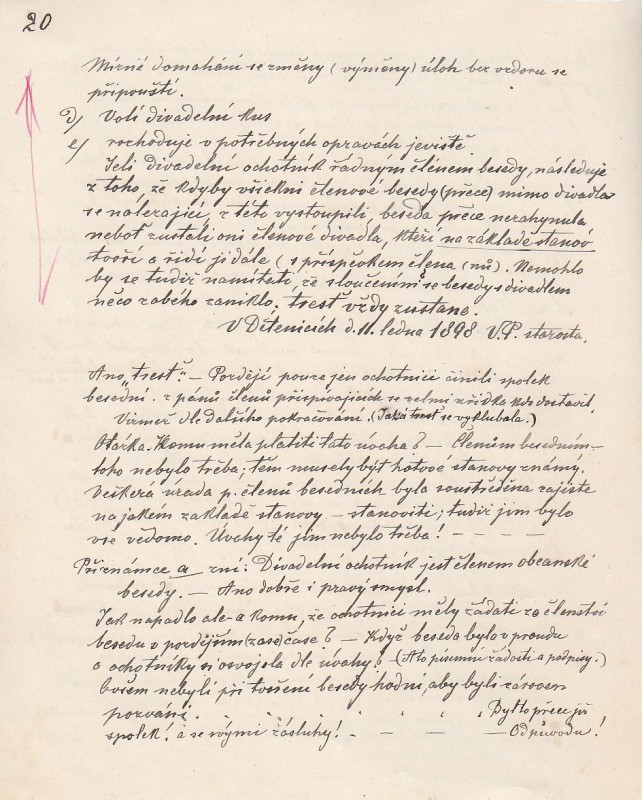 20
Mírné domahání se změny (výměny) úloh bez vzdoru se
připouští.
d) Volí divadelní kus
e) rozhoduje v potřebných opravách jeviště.
Jeli divadelní ochotník řádným členem besedy, následuje
z toho, že kdyby všickni členové besedy (přece) mimo divadla
se nalezající, z této vystoupili, beseda přece nezahynula
neboť zustali oni členové divadla, kteří na základě stanov
tvoří a řídí ji dále (s příspěvkem člena (nů). Nemohlo
by se tudiž namítati, že sloučením se besedy s divadlem
něco zabého zaniklo. tresť vždy zustane.
V Dětenicích d. 11. ledna 1898 V.P. starosta.
Ano „tresť“. – Pozdějí pouze jen ochotnici činili spolek
besední. z pánů členů přispívajících se velmi zřídka kdo dostavil,
Virmež dle dalšího pokračování. (Jaká tresť se vyklubala.)
Otázka. Komu měla platiti tato úvaha? – Členům besedním
toho nebylo třeba; těm musely být hotové stanovy známý.
Veškerá úrada p. členů besedních byla soustředěna zajiste
na jakém zakladě stanovy – stanoviti; tudiž jim bylo
vše vědomo. Úvahy té jim nebylo třeba! – – – –
Při známce a zní: Divadelní ochotník jest členem obcanské
besedy. – Ano dobře i pravý smysl.
Jak napadlo ale a komu, že ochotnici měly žádati za členství
besedu v pozdějším (zase) čase? – Když beseda byla v proudu
a ochotníky si osvojila dle úvahy? (A to písemní žádosti a podpisy.)
Ovšem nebyli při tvoření besedy hodni, aby byli zároveň
pozváni. Byl to přece již
spolek! a se svými zásluhy! – – – – Od původu!